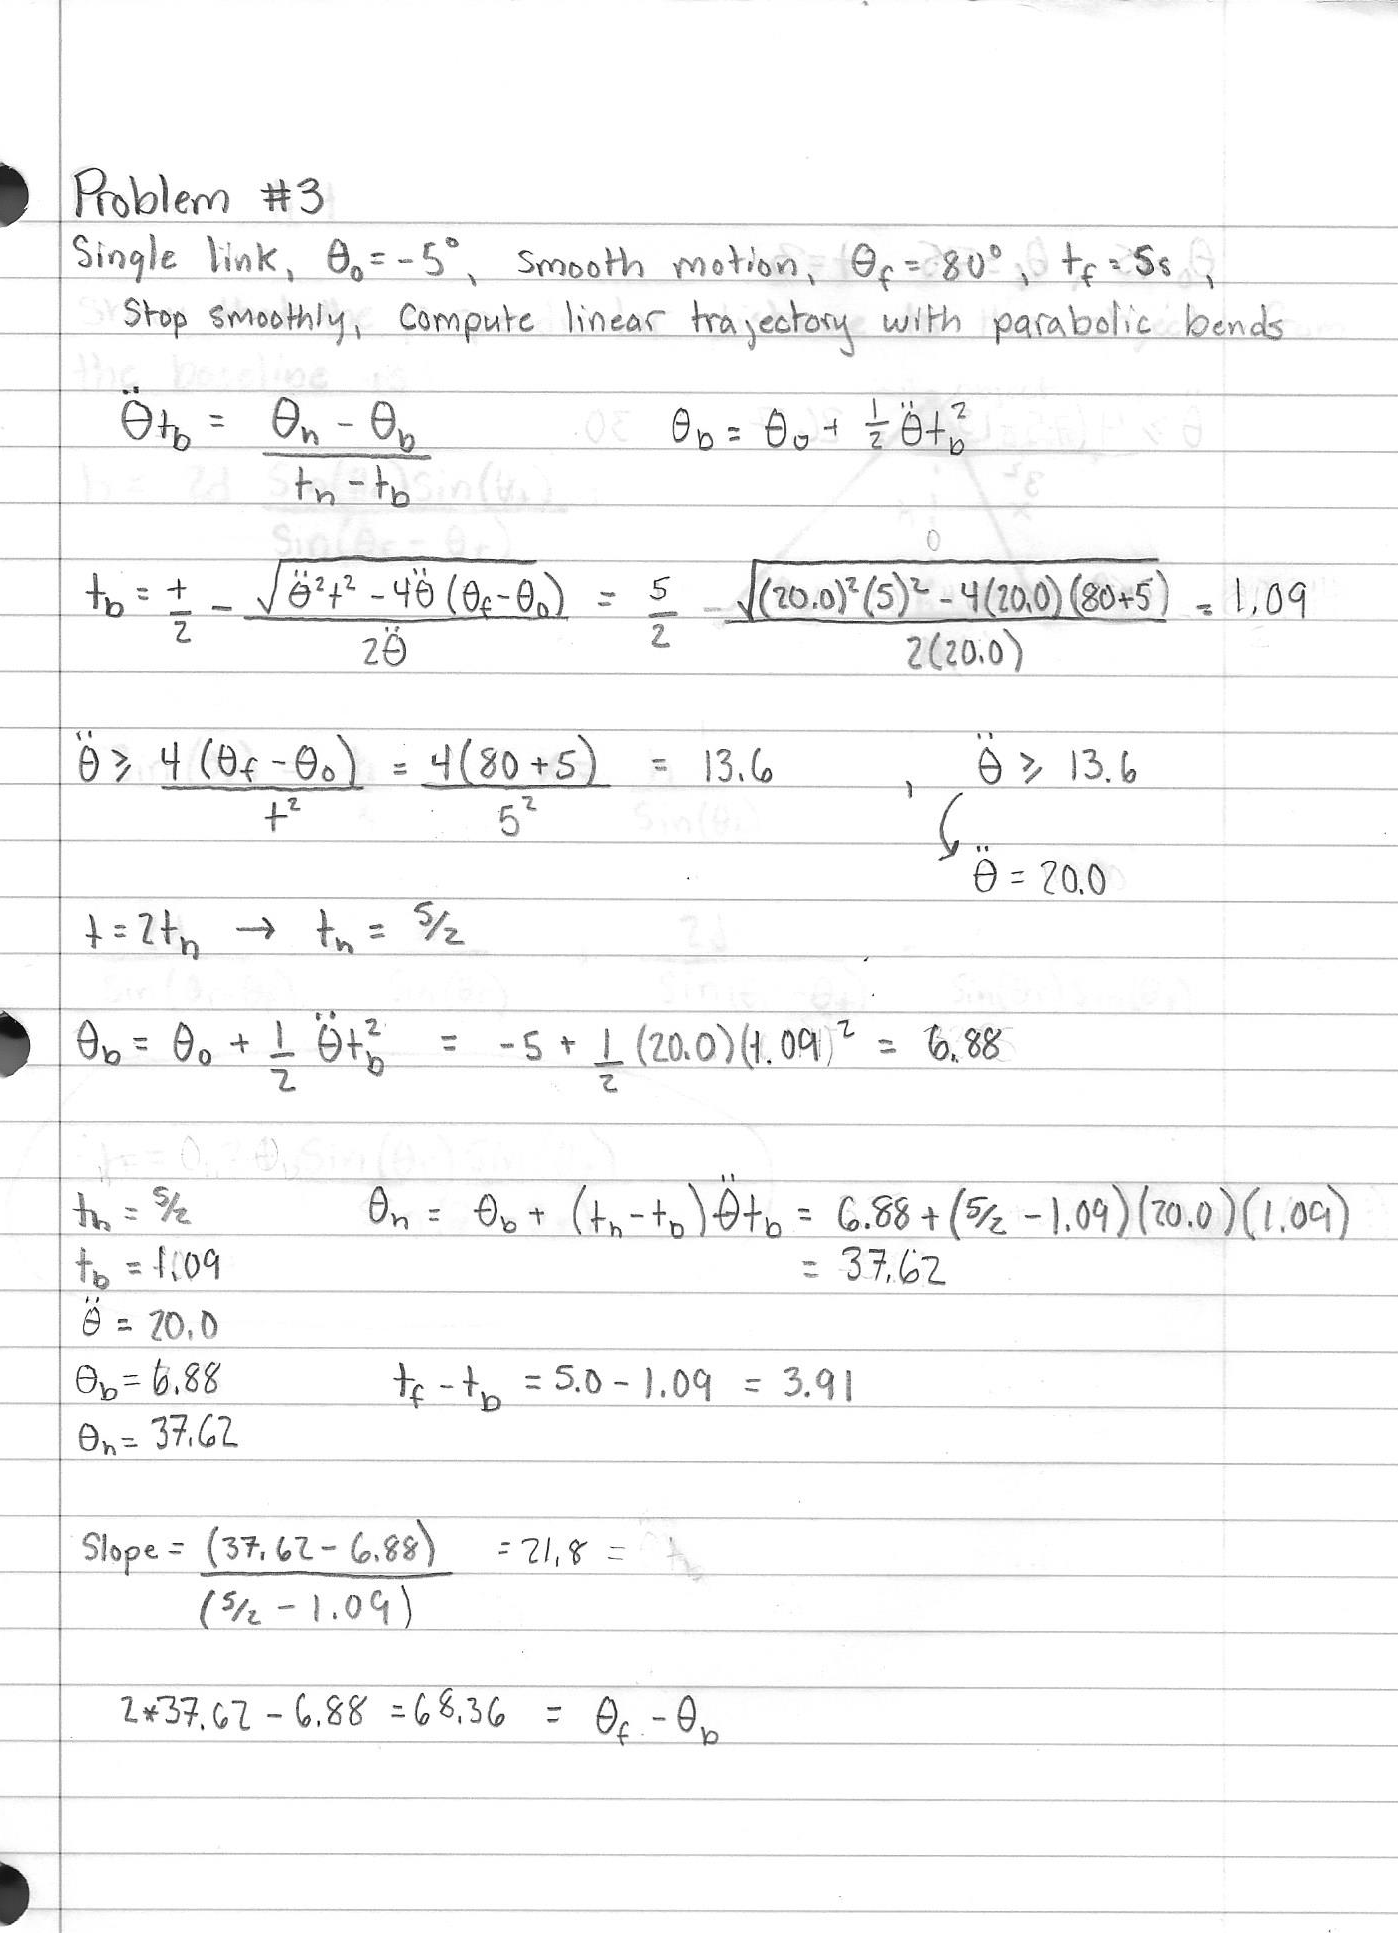 Problem #3
Single link, θ₀ = -5°, smooth motion, θf = 80°, tf = 5s,
Stop smoothly, Compute linear trajectory with parabolic bends
θ̈tb = (θh - θb)/(th - tb)    θb = θ₀ + 1/2 θ̈tb²
tb = t/2 - √(θ̈²t² - 4θ̈(θf - θ₀))/2θ̈ = 5/2 - √((20.0)²(5)² - 4(20.0)(80+5))/2(20.0) = 1.09
θ̈ ≥ 4(θf - θ₀)/t² = 4(80+5)/5² = 13.6 , θ̈ ≥ 13.6
θ̈ = 20.0
t = 2th → th = 5/2
θb = θ₀ + 1/2 θ̈tb² = -5 + 1/2 (20.0)(1.09)² = 6.88
th = 5/2    θh = θb + (th - tb)θ̈tb = 6.88 + (5/2 - 1.09)(20.0)(1.09)
tb = 1.09    = 37.62
θ̈ = 20.0
θb = 6.88    tf - tb = 5.0 - 1.09 = 3.91
θh = 37.62
Slope = (37.62 - 6.88)/(5/2 - 1.09) = 21.8 =
2*37.62 - 6.88 = 68.36 = θf - θb